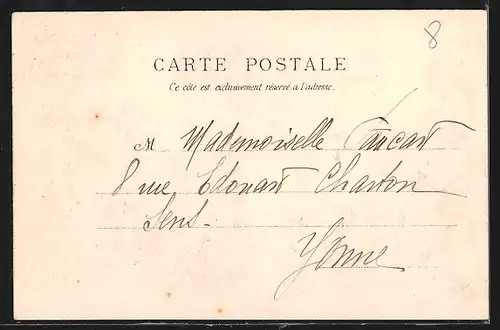 8
CARTE POSTALE
Ce côté est exclusivement réservé à l'adresse.
M Mademoiselle Faucart
8 rue Edouart Charton
Sens.
Yonne